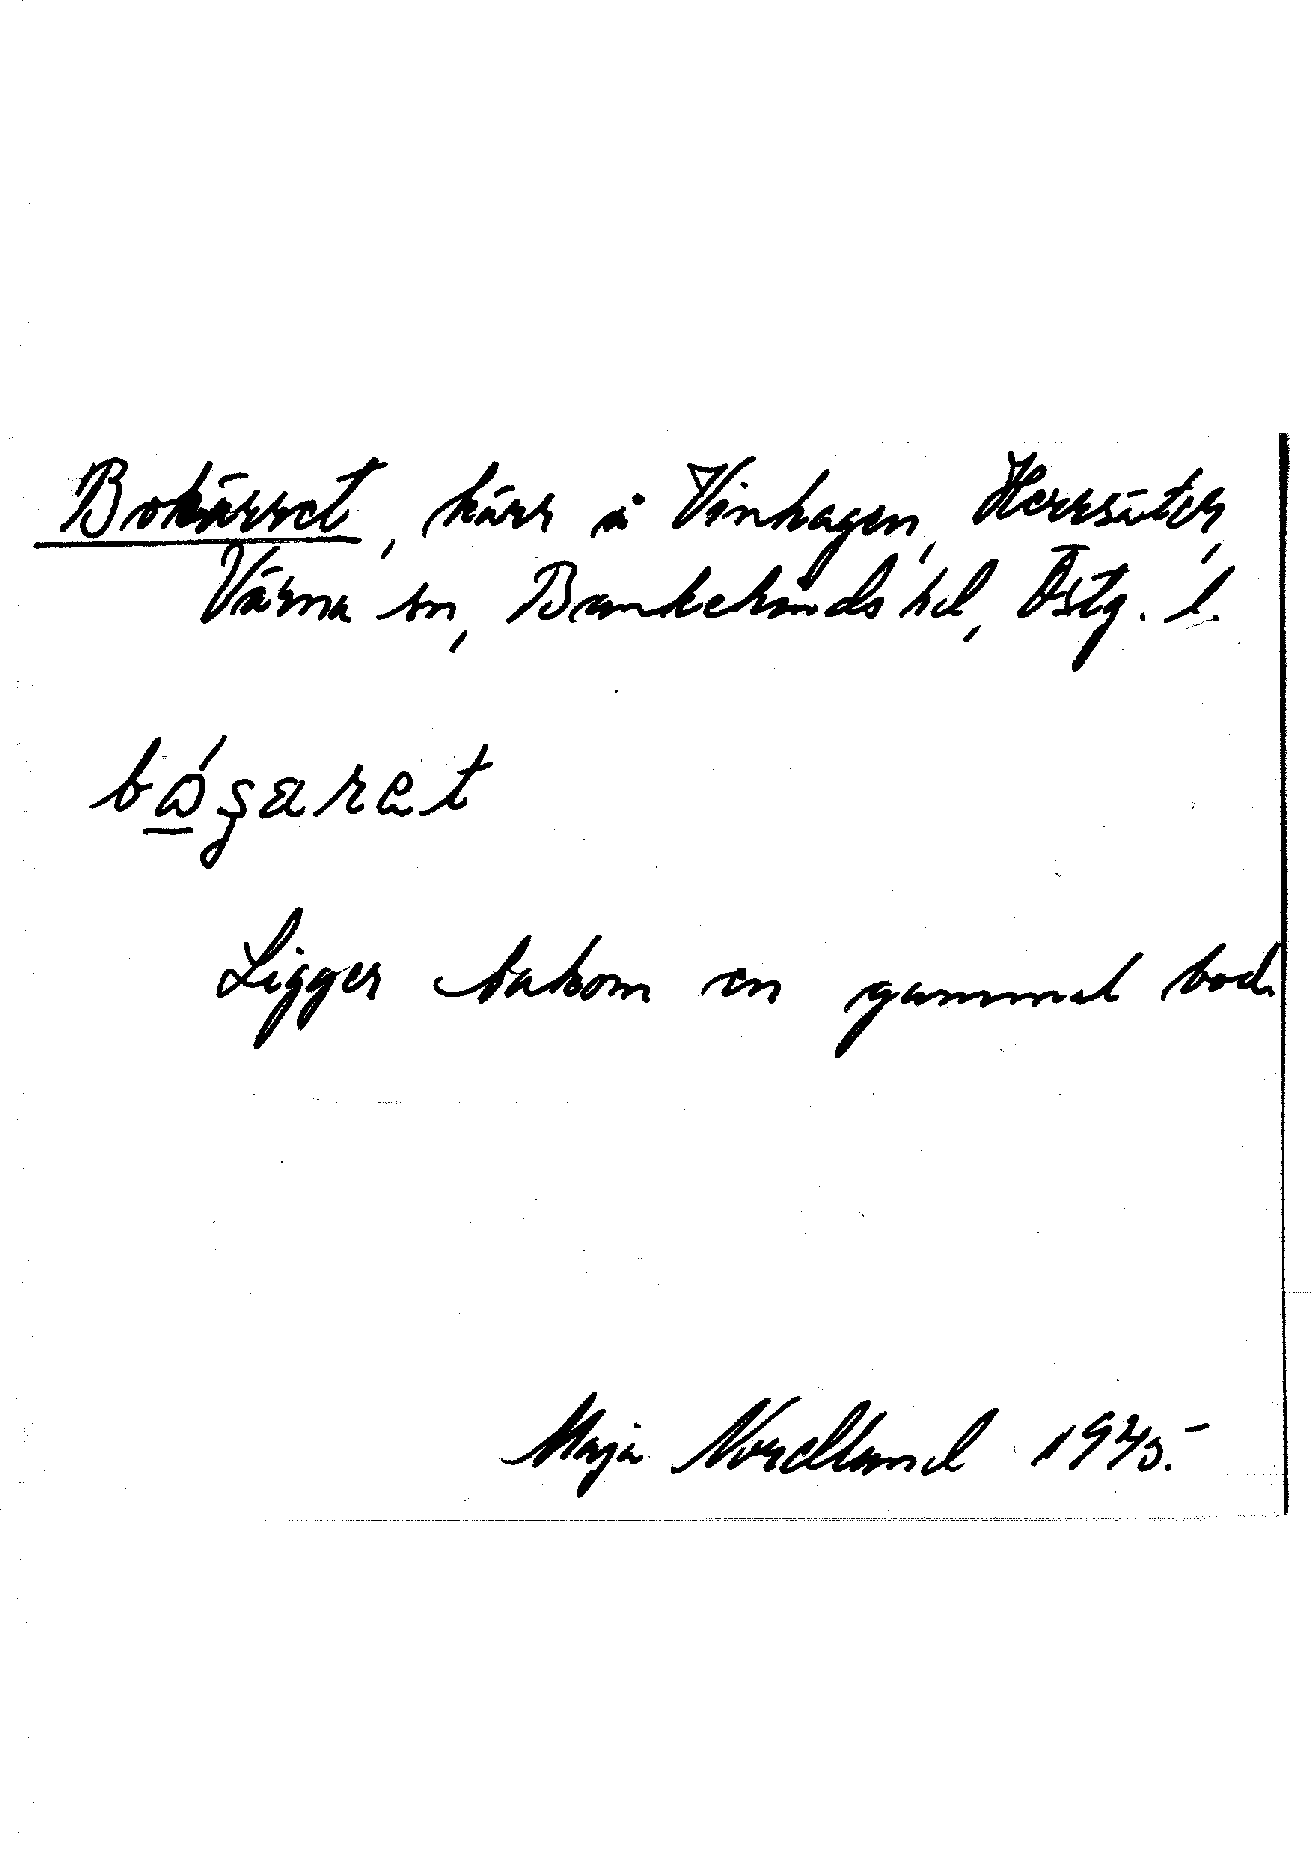 Bokärret, kärr å Vinhagen, Herrsäter,
Värna sn, Bankekinds hd, Östg. l.
Ligger bakom en gammal bod.
Maja Nordlund 1945.